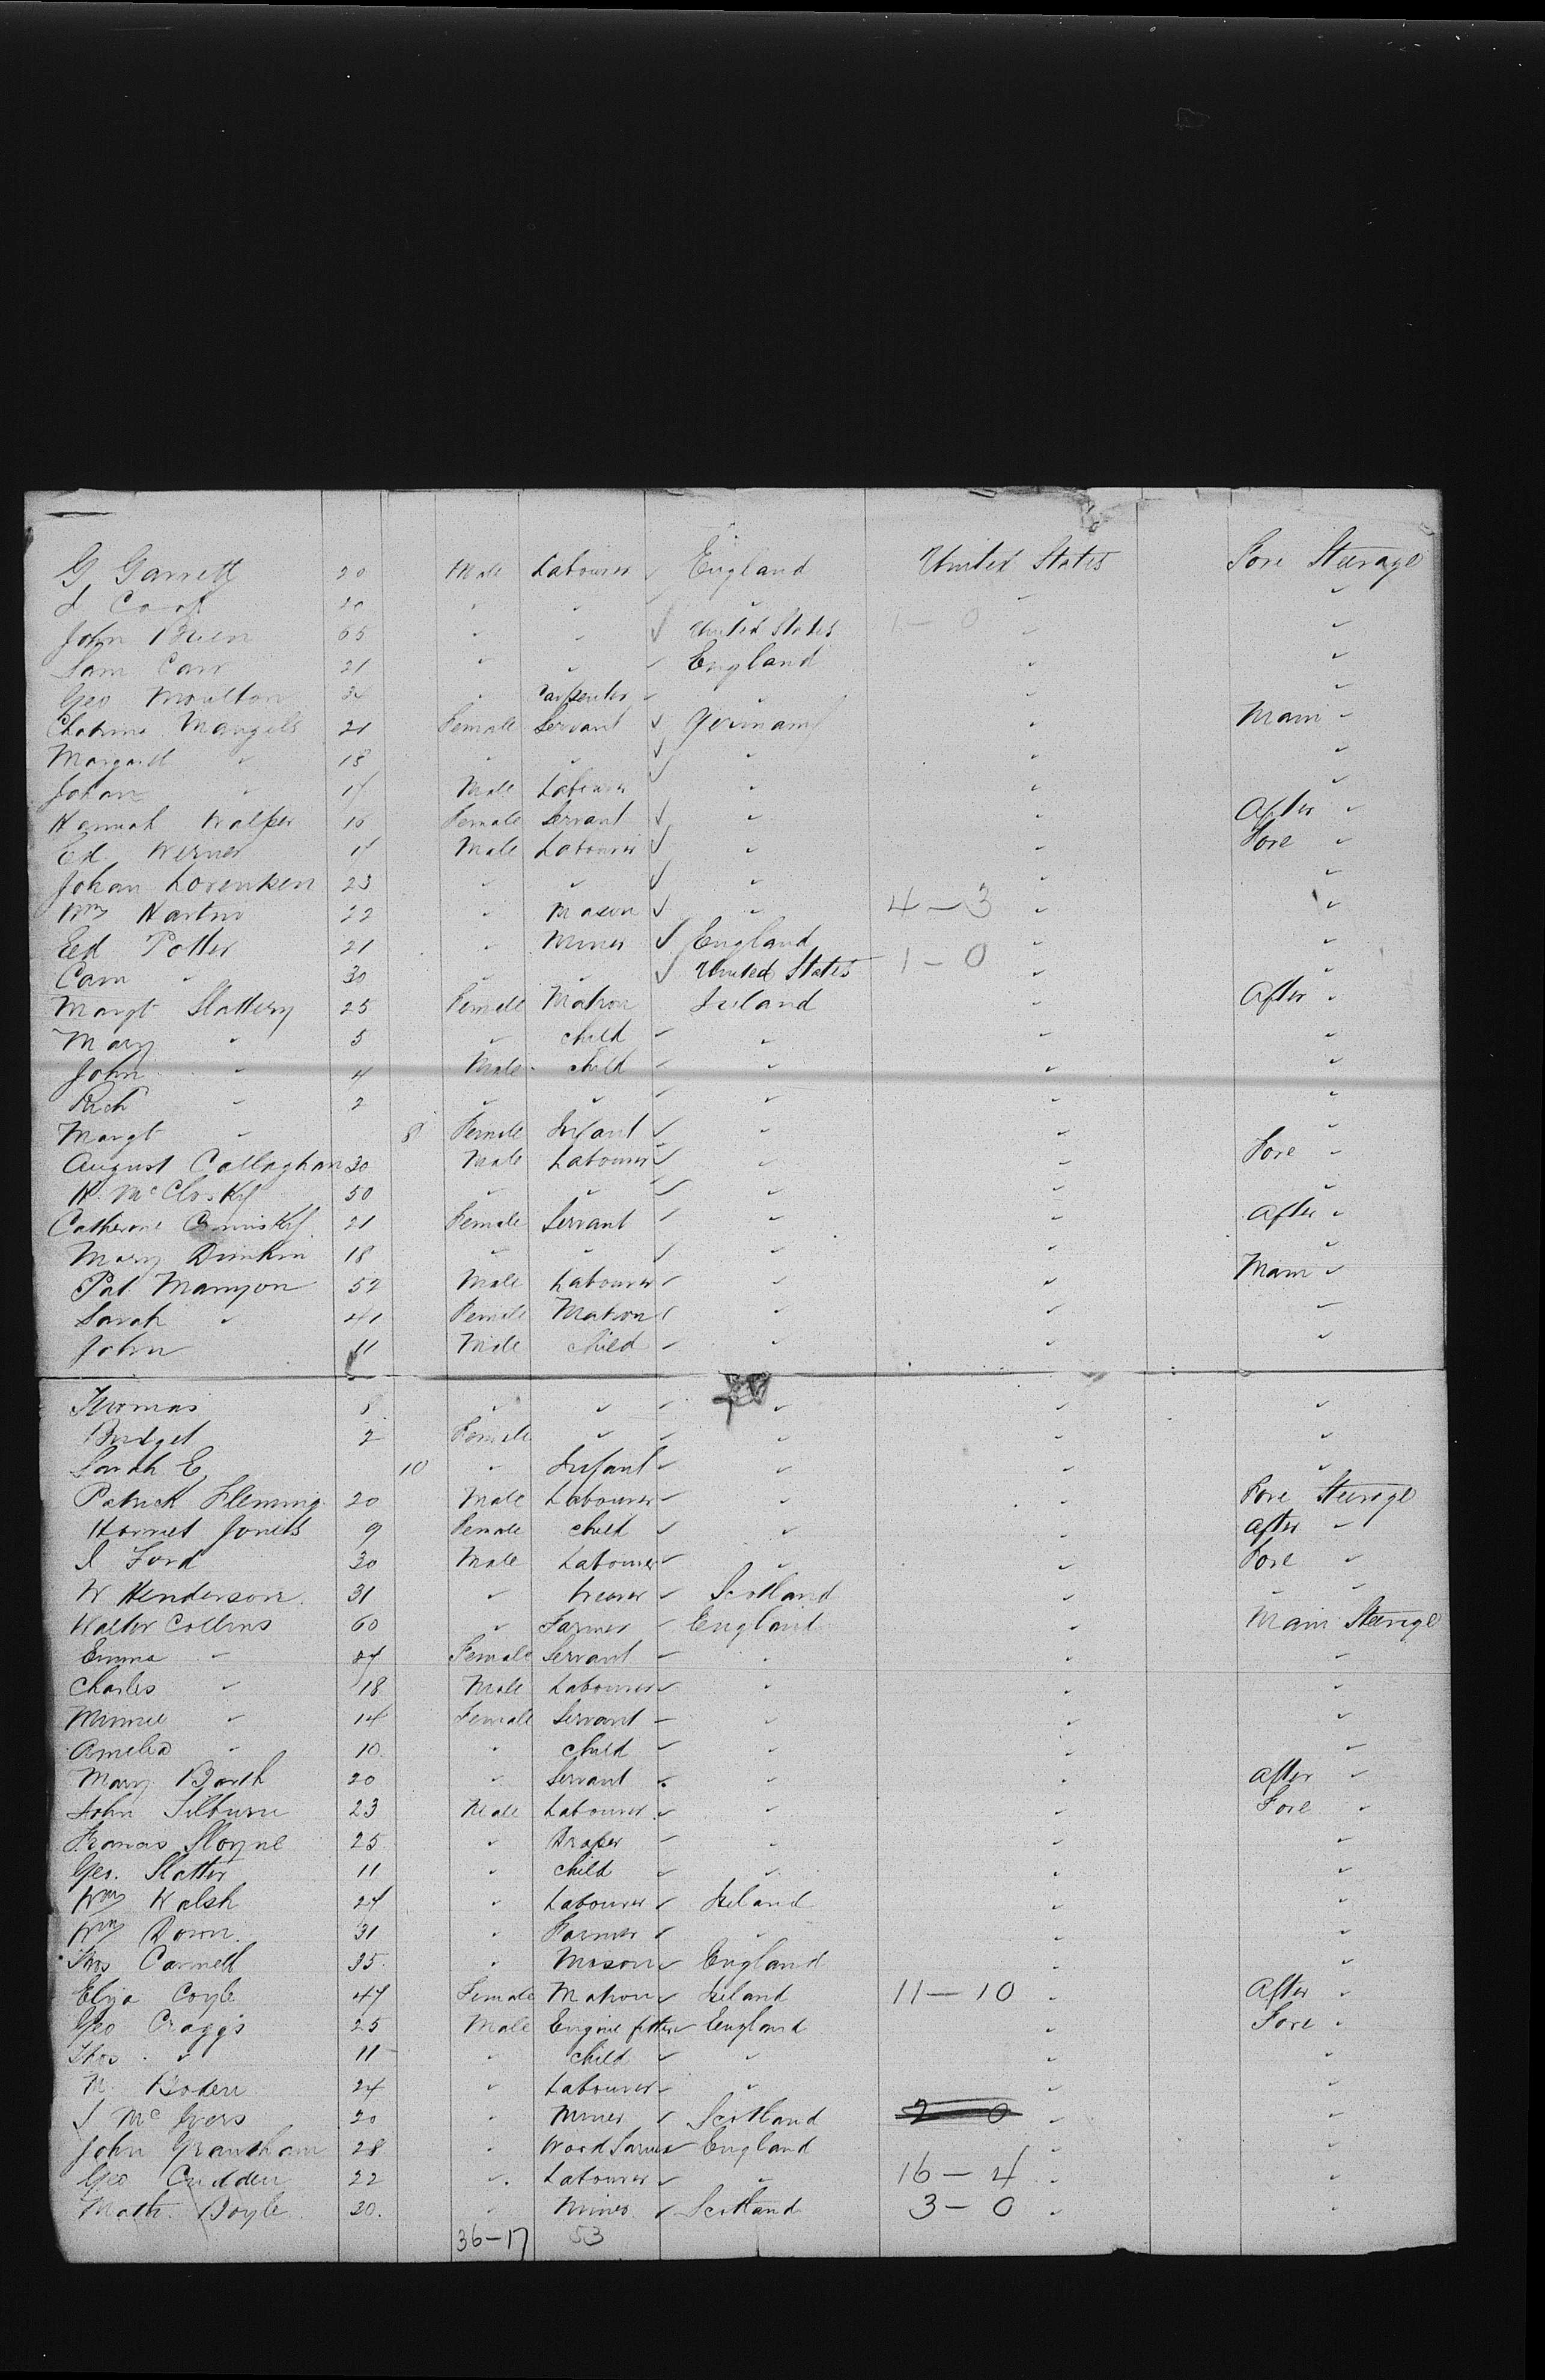 G Garrett 20 Male Labourer ✓ England United States Fore Steerage
J Cook 20 " " ✓ " " "
John Brien 65 " " ✓ United States 1-0 " "
Sam Carr 21 " " ✓ England " "
Geo Moulton 34 " Carpenter ✓ " " "
Mangels 21 Female Servant ✓ Germany " Main "
Margaret " 18 " " ✓ " " "
Johan " 17 Male Labourer ✓ " " "
Hannah Walper 16 Female Servant ✓ " " After "
Ed Werner 17 Male Labourer ✓ " " Fore "
Johan Lorenksen 23 " " ✓ " " "
Wm 22 " Mason ✓ " 4-3 " "
Ed Potter 21 " Miner ✓ England " "
" 30 " " ✓ United States 1-0 " "
Margt Slattery 25 Female Matron Ireland " After "
Mary " 5 " child ✓ " " "
John " 4 Male child ✓ " " "
Rich " 2 " " ✓ " " "
Margt " 8 Female Infant ✓ " " "
August Callaghan 30 Male Labourer ✓ " " Fore "
H. McClosky 50 " " ✓ " " "
Catherine 21 Female Servant ✓ " " After "
Mary 18 " " ✓ " " "
Pat Mannyon 52 Male Labourer ✓ " " Main "
Sarah " 41 Female Matron ✓ " " "
John 11 Male child ✓ " " "
Thomas 8 " " ✓ " " "
Bridget 2 Female " ✓ " " "
Sarah E 10 " Infant ✓ " " "
Patrick Fleming 20 Male Labourer ✓ " " Fore Steerage
9 Female child ✓ " " After "
Ford 30 Male Labourer ✓ " " Fore "
W Henderson 31 " ✓ Scotland " " "
Walter Collins 60 " Farmer ✓ England " Main Steerage
Emma " Female Servant ✓ " " "
Charles " 18 Male Labourer ✓ " " "
Minnie " 14 Female Servant ✓ " " "
Amelia " 10 " child ✓ " " "
Mary Barth 20 " Servant ✓ " " After "
John Silburn 23 Male Labourer ✓ " " Fore "
Francis 25 " Draper ✓ " " "
Geo. Slatter 11 " child ✓ " " "
Wm Walsh 24 " Labourer ✓ Ireland " "
Wm Down 31 " Farmer ✓ " " "
Thos Carnell 35 " Mason ✓ England " "
Eliza Coyle 47 Female Matron ✓ Ireland 11-10 " After "
Geo Craggs 25 Male Engine fitter ✓ England " Fore "
Thos " 11 " child ✓ " " "
M. Boden 24 " Labourer ✓ " " "
J McIvers 20 " Miner ✓ Scotland 2-0 " "
John Grantham 28 " ✓ England " "
Geo Cudden 22 " Labourer ✓ " 16-4 " "
Math. Boyle 20. " Miner ✓ Scotland 3-0 " "
36-17 53